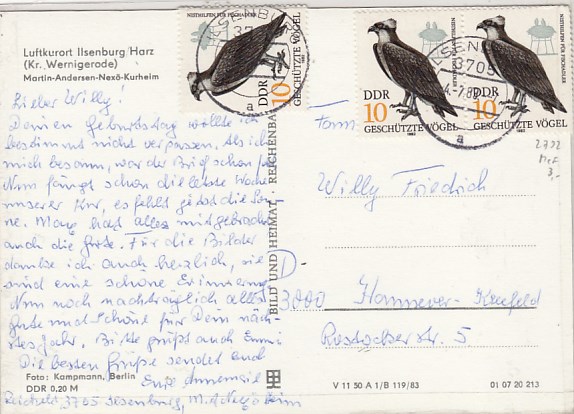 Luftkurort Ilsenburg/Harz
(Kr. Wernigerode)
Martin-Andersen-Nexö-Kurheim
Lieber Willy!
Deinen Geburtstag wollte ich
bestimmt nicht verpassen. Als ich
mich besann, war der Brief schon
Nun fängt schon die letzte Woche
unserer Kur, es fehlt jetzt die Son-
ne. Marg hat alles mitgebracht
auch die gute. Für die Bilder
danke ich auch herzlich, sie
sind eine schöne Erinnerung
Nun noch nachträglich alles
Gute und Schöne für Dein näch-
stes Jahr. Bitte grüßt auch Emmi
Die besten Grüße sendet auch
Eure Annemarie
Foto: Kampmann, Berlin
DDR 0,20 M
3705 Ilsenburg, M.A. Nexö Heim
BILD UND HEIMAT REICHENBA
NISTHILFEN FÜR FISCHADLER
DDR
10
GESCHÜTZTE VÖGEL
1982
NISTHILFEN FÜR FISCHADLER
DDR
10
GESCHÜTZTE VÖGEL
1982
NISTHILFEN FÜR FISCHADLER
DDR
10
GESCHÜTZTE VÖGEL
1982
ILSENBURG
3705
a
Fam
Willy Friedrich
D
3000 Hannover-Kleefeld
Rostocker Str. 5
3,-
V 11 50 A 1/B 119/83
01 07 20 213